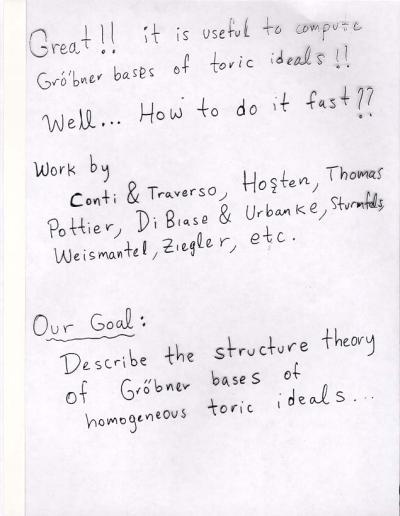 Great!! it is useful to compute
Gröbner bases of toric ideals!!
Well... How to do it fast??
Work by
Conti & Traverso, Hoşten, Thomas
Pottier, Di Biase & Urbanke, Sturmfels,
Weismantel, Ziegler, etc.
Our Goal:
Describe the structure theory
of Gröbner bases of
homogeneous toric ideals...